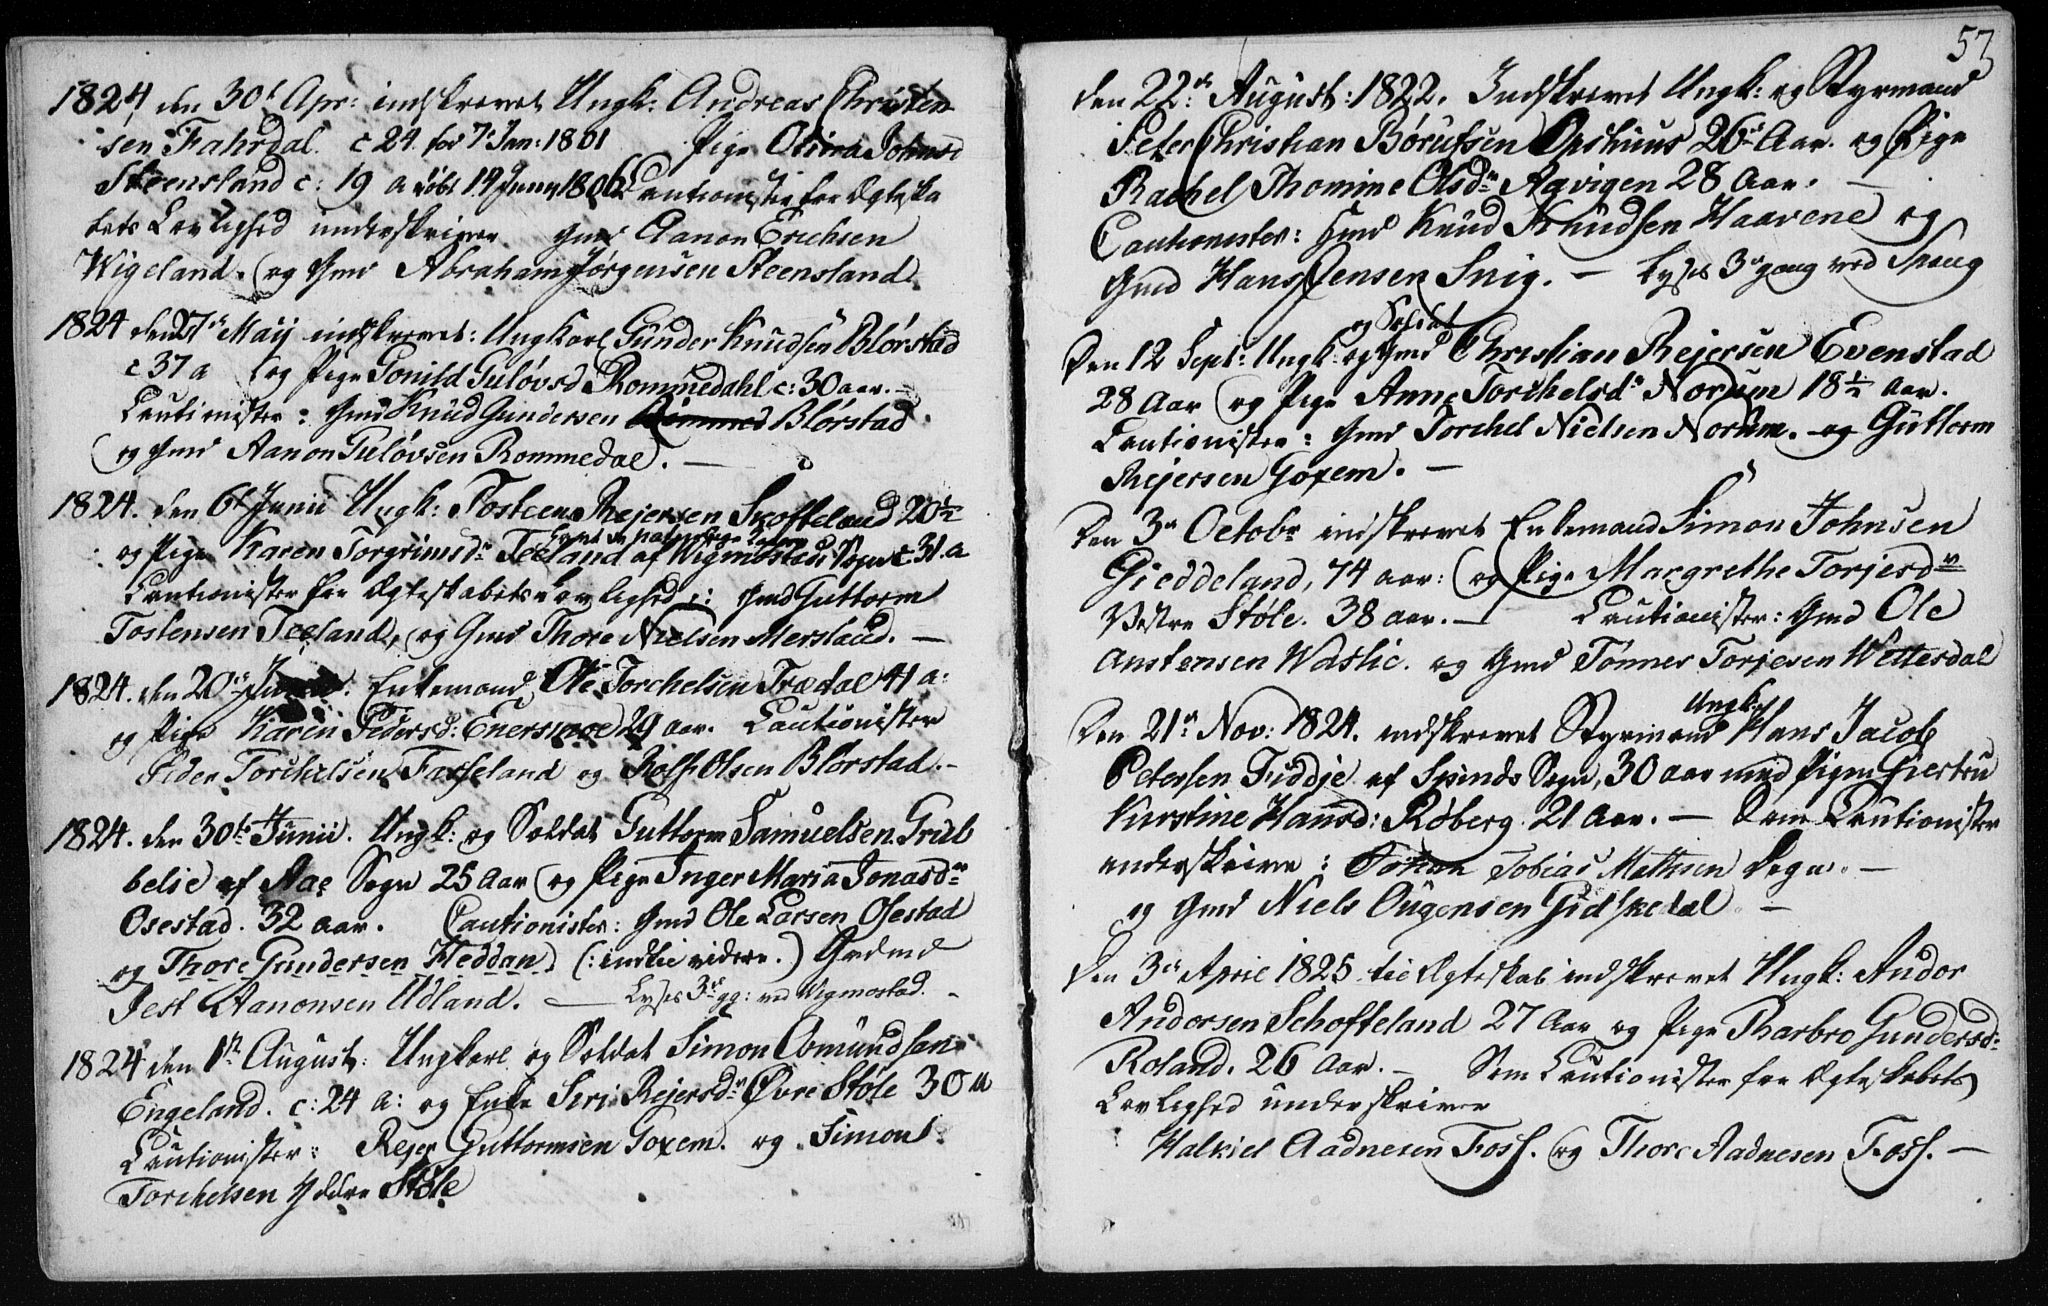 1824, den 30t Apr: indskrevet Ungk: Andreas Christen
sen Fahrdal. c 24. før 7de Jan: 1801 Pige Olina Johnsd
Steensland c: 19 a døbt 14 Juny 1806 Cautionister for Ægteska
bets Lovlighed underskriver Gmd Aanon Erichsen
Wigeland. og Gmd Abraham Jørgensen Steensland.
1824 den 27de Maij indskrevet: Ungkarl Gunder Knudsen Blørstad
c 37 a og Pige Gonild Guløvsd Rommedahl c: 30 aar. -
Cautionister: Gmd Knud Gundersen Blørstad
og Gmd Aanon Guløvsen Rommedal. -
1824. den 6t Junii Ungk: Tosteen Rejersen Skoffeland 20 1/2
og Pige Karen Torgrimsdr Teeland af Wigmostad Sogn c 31 a
Cautionister for Ægteskabets Lovlighed er: Gmd Guttorm
Tostensen Teeland, og Gmd Thore Nielsen Merstad. -
1824. den 20de Enkemand Ole Torchelsen Trædal 41 a:
og Pige Karen Pedersd: Enersmoe 29 aar. Cautionister
Peder Torchelsen Fasseland og Rolf Olsen Blørstad. -
1824. den 30te Junii. Ungk: og Soldat Guttorm Samuelsen Grib
belie af Aae Sogn 25 Aar og Pige Inger Maria Jonasdr
Osestad. 32 aar. Cautionister: Gmd Ole Larsen Osestad
og Thore Gundersen Heddan (: indtil videre.) Grdmd
Jest Aanonsen Udland. - Lyses 3de gg: ved Wigmostad. -
1824 den 1ste August: Ungkarl og Soldat Simon Osmundsen
Engeland. c: 24 a: og Enke Siri Rejersdr Øvre Støle 30 a
Cautionister: Rejer Guttormsen Goxem. og Simon
Torchelsen Yddre Støle
53
den 22de August: 1822. Indskrevet Ungk: og Styrmand
Peter Christian Børufsen Opshuus 26 Aar. og Pige
Rachel Thomine Olsdr Agvigen 28 Aar. -
Cautionister: Gmd Knud Knudsen Haavene og
Gmd Hans Jensen Snig. - Lyses 3de gang ved Spang
og Soldat
Den 12 Sept: Ungk: og Gmd Christian Rejersen Evenstad
28 Aar og Pige Anne Torchelsdr Norum 18 1/2 Aar.
Cautionister: Gmd Torchel Nielsen Norum. og Guttorm
Rejersen Goxem. -
Den 3de Octobr indskrevet Enkemand Simon Johnsen
Gieddeland, 74 aar: og Pige Margrethe Torjesdr
Vestre Støle. 38 aar. - Cautionister: Gmd Ole
Anstensen Waslie. og Gmd Tønnes Torjesen Wettesdal
Ungk:
Den 21de Nov: 1824. indskrevet Styrmand Hans Jacob
Petersen Fiddje af Spinds Sogn, 30 aar med Pigen Giertru
Kirstine Hansd: Røberg 21 Aar. - Som Cautionister
underskrive: Tobias Mathisen Degn. -
og Gmd Niels Ougensen Gidskedal -
Den 3de April 1825 til Ægteskab indskrevet Ungk: Andor
Andorsen Schoffeland 27 Aar og Pige Barbro Gundersdr:
Roland. 26 Aar. - Som Cautionister for Ægteskabets
Lovlighed underskriver
Halviel Aadnesen Foss. og Thore Aadnesen Foss. -